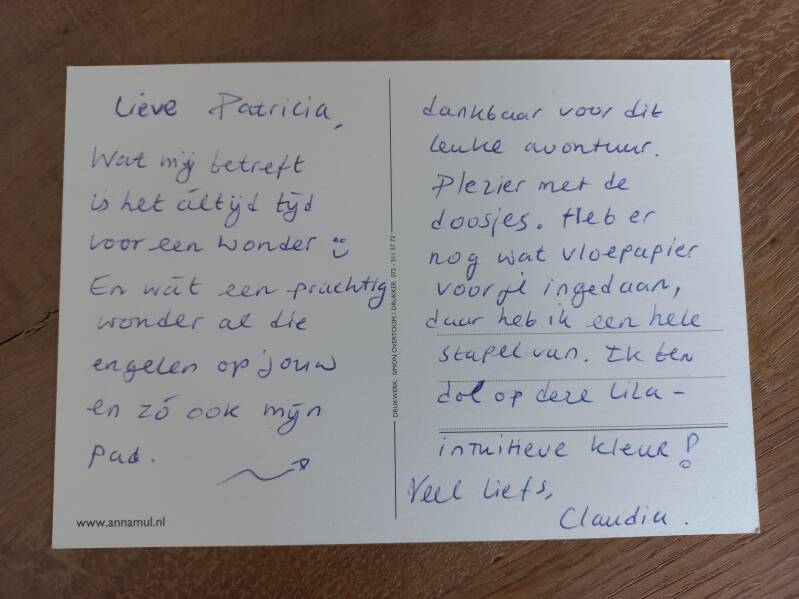 Lieve Patricia,
Wat mij betreft
is het áltijd tijd
voor een wonder
En wát een prachtig
wonder al die
engelen op jouw
en zó ook mijn
pad.
www.annamul.nl
DRUKWERK: SIMON OVERTOOM / DRUKKER 072 - 511 57 72
dankbaar voor dit
leuke avontuur.
Plezier met de
doosjes. Heb er
nog wat vloepapier
voor je ingedaan,
daar heb ik een hele
stapel van. Ik ben
dol op deze lila-
intuitieve kleur!
Veel liefs,
Claudia.